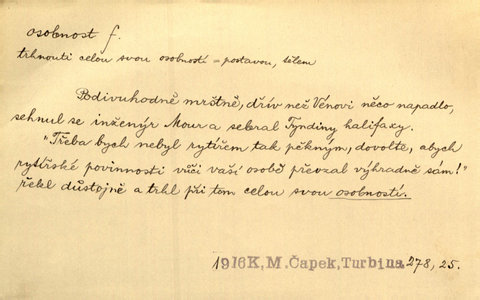 osobnost f.
trhnouti celou svou osobností = postavou, tělem
Podivuhodně mrštně, dřív než Vénovi něco napadlo,
sehnul se inženýr Mour a sebral Tyndiny halifaxy.
"Třeba bych nebyl rytířem tak pěkným, dovolte, abych
rytířské povinnosti vůči vaší osobě převzal výhradně sám!"
řekl důstojně a trhl při tom celou svou osobností.
1916 K, M. Čapek, Turbina 278, 25.